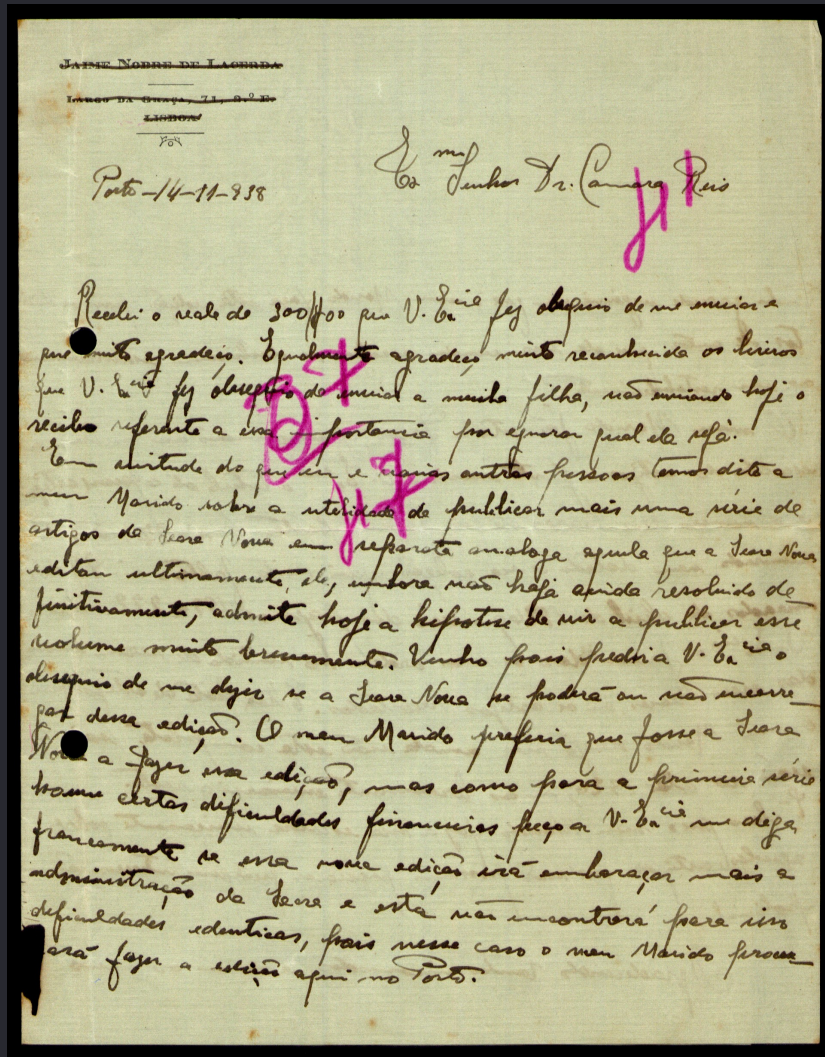 JAIME NOBRE DE LACERDA
LARGO DA GRAÇA, 71, 2.º E.
LISBOA
Porto-14-11-938
Ex.mo Senhor Dr. Camara Reis
Recebi o vale de 300$00 que V. Ex.cia fez obsequio de me enviar e
que muito agradeço. Egualmente agradeço muito reconhecida os livros
que V. Ex.cia fez obsequio de enviar a minha filha, não enviando hoje o
recibo referente a essa importancia por egnorar qual ela seja.
Em virtude do que eu e varias outras pessoas temos dito a
meu Marido sobre a utilidade de publicar mais uma série de
artigos da Seara Nova em separata analoga aquela que a Seara Nova
editou ultimamente, ele, embora não haja ainda resolvido de-
finitivamente, admite hoje a hipotese de vir a publicar esse
volume muito brevemente. Venho pois pedir a V. Ex.cia o
obsequio de me dizer se a Seara Nova se poderá ou não encarre-
gar dessa edição. O meu Marido preferia que fosse a Seara
Nova a fazer essa edição, mas como para a primeira série
houve certas dificuldades financeiras peço a V. Ex.cia me diga
francamente se essa nova edição irá embaraçar mais a
administração da Seara e esta não encontrará para isso
dificuldades edenticas, pois nesse caso o meu Marido procu-
rará fazer a edição aqui no Porto.